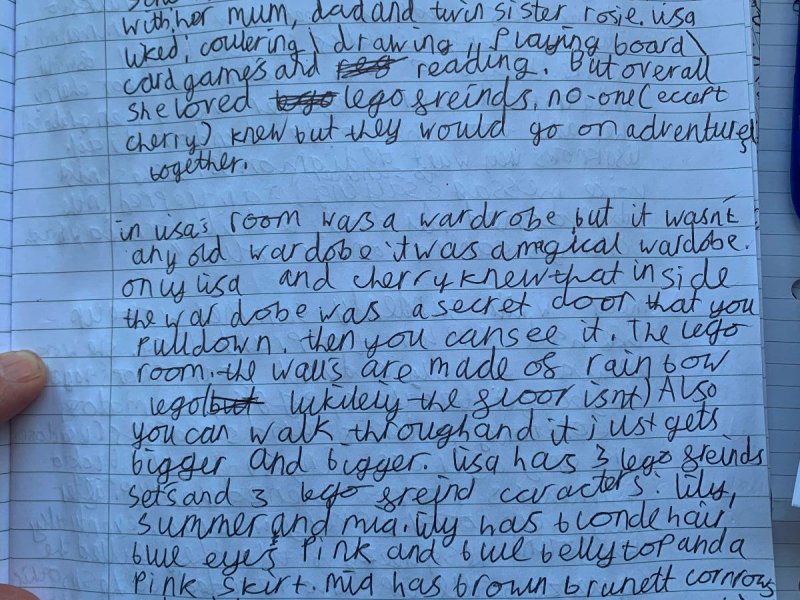 with her mum, dad and twin sister rosie. lisa
liked; coulering \ drawing, playing board \
card games and reading. But overall
she loved lego freinds. no-one (except
cherry) knew but they would go on adventures
together.
in lisa's room was a wardrobe but it wasn't
any old wardobe it was a magical wardobe.
only lisa and cherry knew that inside
the wardobe was a secret door that you
pull down. then you can see it. The lego
room. the walls are made of rainbow
lego (lukilely the floor isnt) Also
you can walk through and it just gets
bigger and bigger. lisa has 3 lego freinds
sets and 3 lego freind caracters: lily,
summer and mia. lily has blonde hair,
blue eyes pink and blue belly top and a
pink skirt. mia has brown brunett cornrows